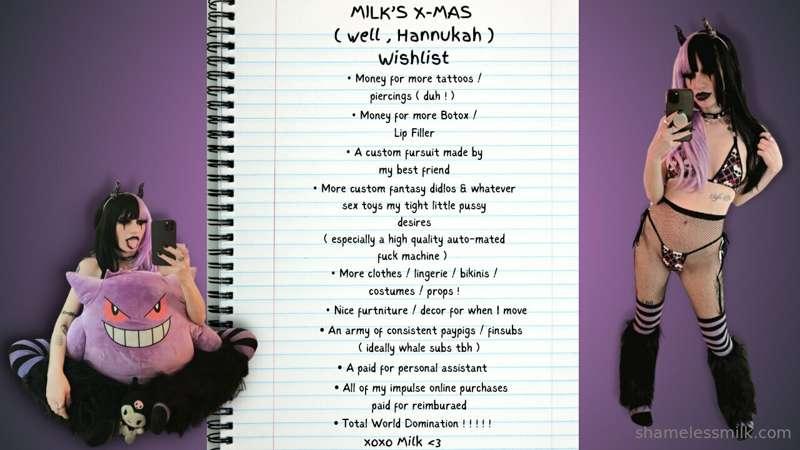 MILK'S X-MAS
( well , Hannukah )
Wishlist
• Money for more tattoos /
piercings ( duh ! )
• Money for more Botox /
Lip Filler
• A custom fursuit made by
my best friend
• More custom fantasy didlos & whatever
sex toys my tight little pussy
desires
( especially a high quality auto-mated
fuck machine )
• More clothes / lingerie / bikinis /
costumes / props !
• Nice furtniture / decor for when I move
• An army of consistent paypigs / finsubs
( ideally whale subs tbh )
• A paid for personal assistant
• All of my impulse online purchases
paid for reimburaed
• Total World Domination ! ! ! ! !
xoxo Milk <3
shamelessmilk.com